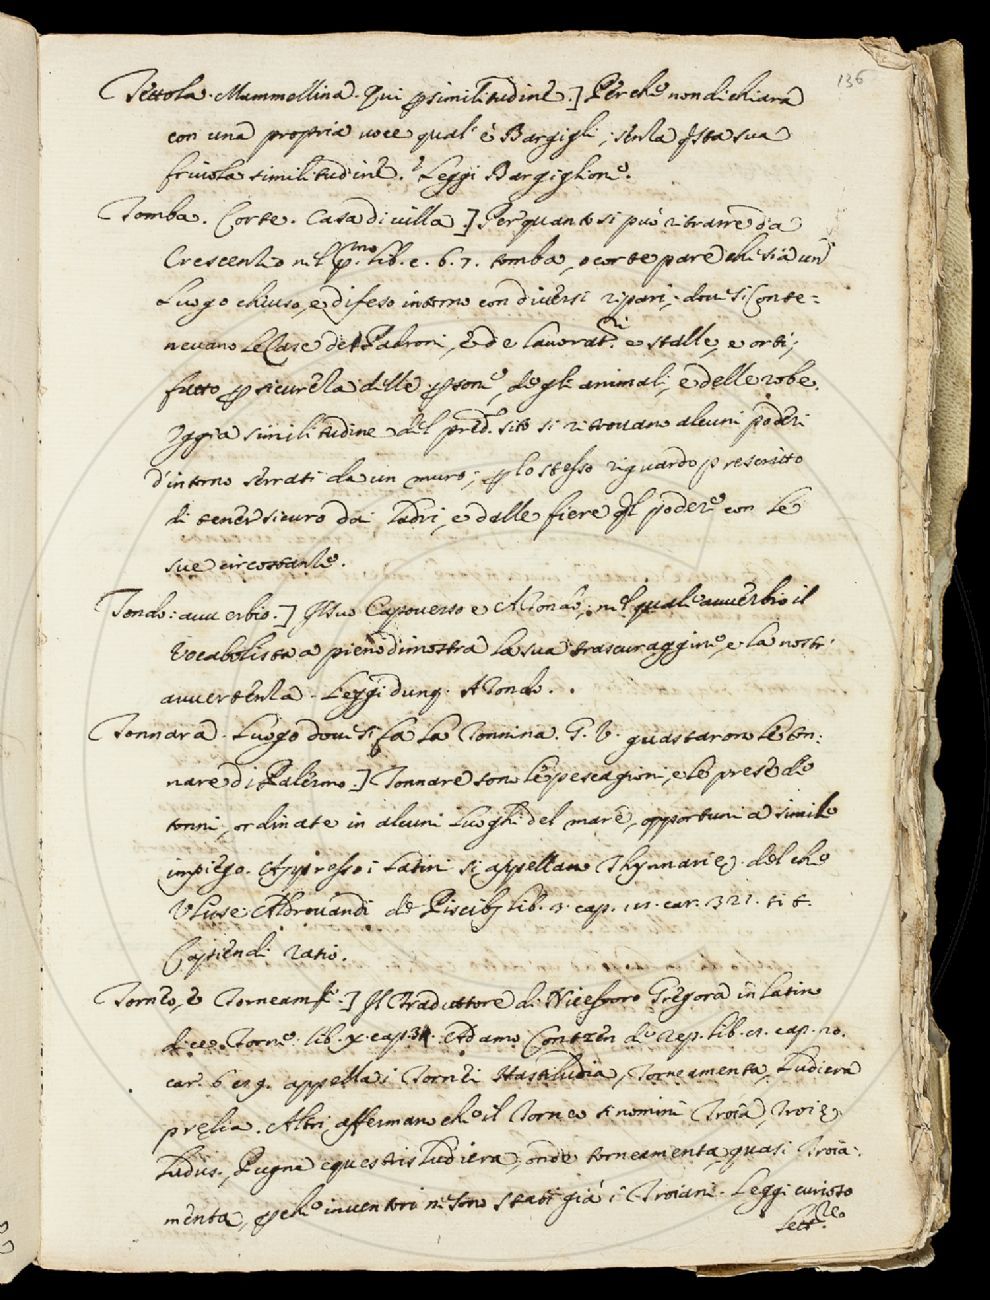 136
Tettola. Mammellina. Qui p similitudine.] Perche non dichiara
con una propria voce qual' è Bargigli, senza qsta sua
friuola similitudine.? Leggi Bargiglione.
Tomba. Corte. Casa di uilla.] Per quanto si può ritrarre da
Crescenzio nel pmo. lib. c. 6. 7. tomba, o corte pare che sia un
Luogo chiuso, e difeso intorno con diuersi ripari, doue si conte=
neuano le Case de Padroni, e de lauorat.ri e stalle, e orti,
fatto p sicurezza delle psone, degli animali, e delle robe.
Oggi a similitudine del pred. sito si ritrouano alcuni poderi
d'intorno serrati da un muro, p lo stesso riguardo prescritto
di tener sicuro da' Ladri, e dalle fiere ql podere con le
sue circostanze.
Tondo: auuerbio.] Capouerso e A Tondo, nel quale auuerbio il
Vocabolista a pieno dimostra la sua trascuraggine, e la nostr.
auuertenza. Leggi dunq. A Tondo.
Tonnara. Luogo doue si fa la Tonnina. G. V. guastarono le ton:
nare di Palermo.] Tonnare sono le pescagioni, e le prese de
tonni, ordinate in alcuni Luoghi del mare, opportuni a simile
impiego. Appresso i Latini si appellano Thynnarię. del che
Vlisse Aldrouandi de Piscibq lib. 3. cap. car. 321. tit.
Capiendi ratio.
Torneo, e Torneam.to.] Il Traduttore di Niceforo Gregora in Latino
dice. Torne. lib. x. cap. Adamo Contzen de rep. lib. cap.
car. appella i Tornei Hastiludia, Torneamenta, Ludicra
pręlia. Altri affermano che il Torneo si nomini Troia, Troię,
Ludus, Pugna equestris Ludicra, onde torneamenta, quasi Troia:
menta, pche inuentori ne sono stati già i Troiani. Leggi curioso
Lett.re